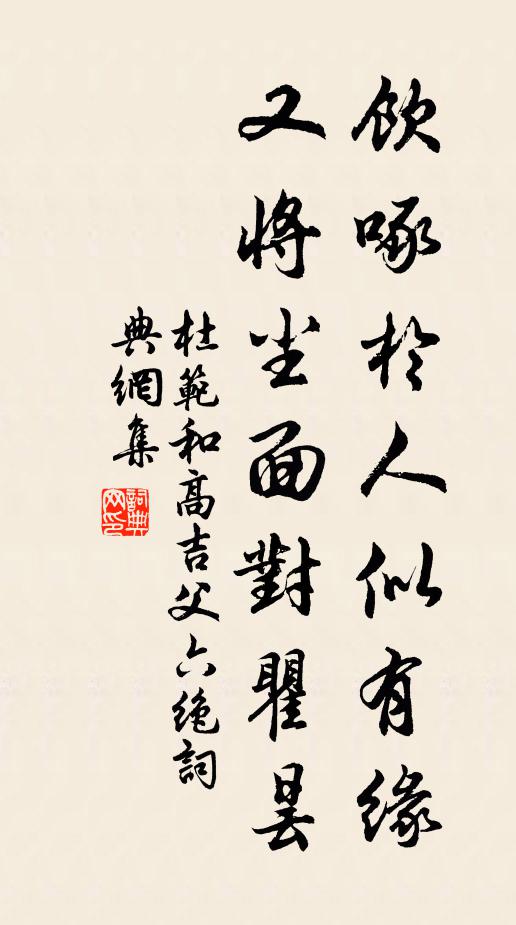 飲啄於人似有緣
又將尘面對瞿昙
杜範和高吉父六绝詞
典網集
詞典
网印